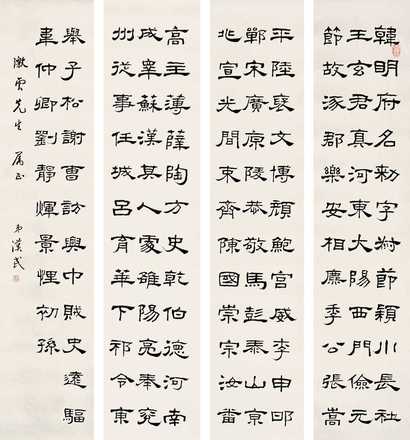 韓明府名勑字叔節穎川長社
王玄君真河東大陽西門儉元
節故涿郡樂安相麃季公張嵩
平陸裒文博顏鮑宮威李申邯
鄲宋廣京陵恭敬馬彭泰山京
兆宣光間束齊陳國崇宗汝菑
高主薄薛陶方史乾伯德河南
成睾蘇漢其人處雒陽亮奉兗
州從事任城呂育華下祁令東
舉子松謝曹訪興中賊史遠驅
車仲卿劉靜煇景悝初孫
澂雲先生 屬正 弟漢民